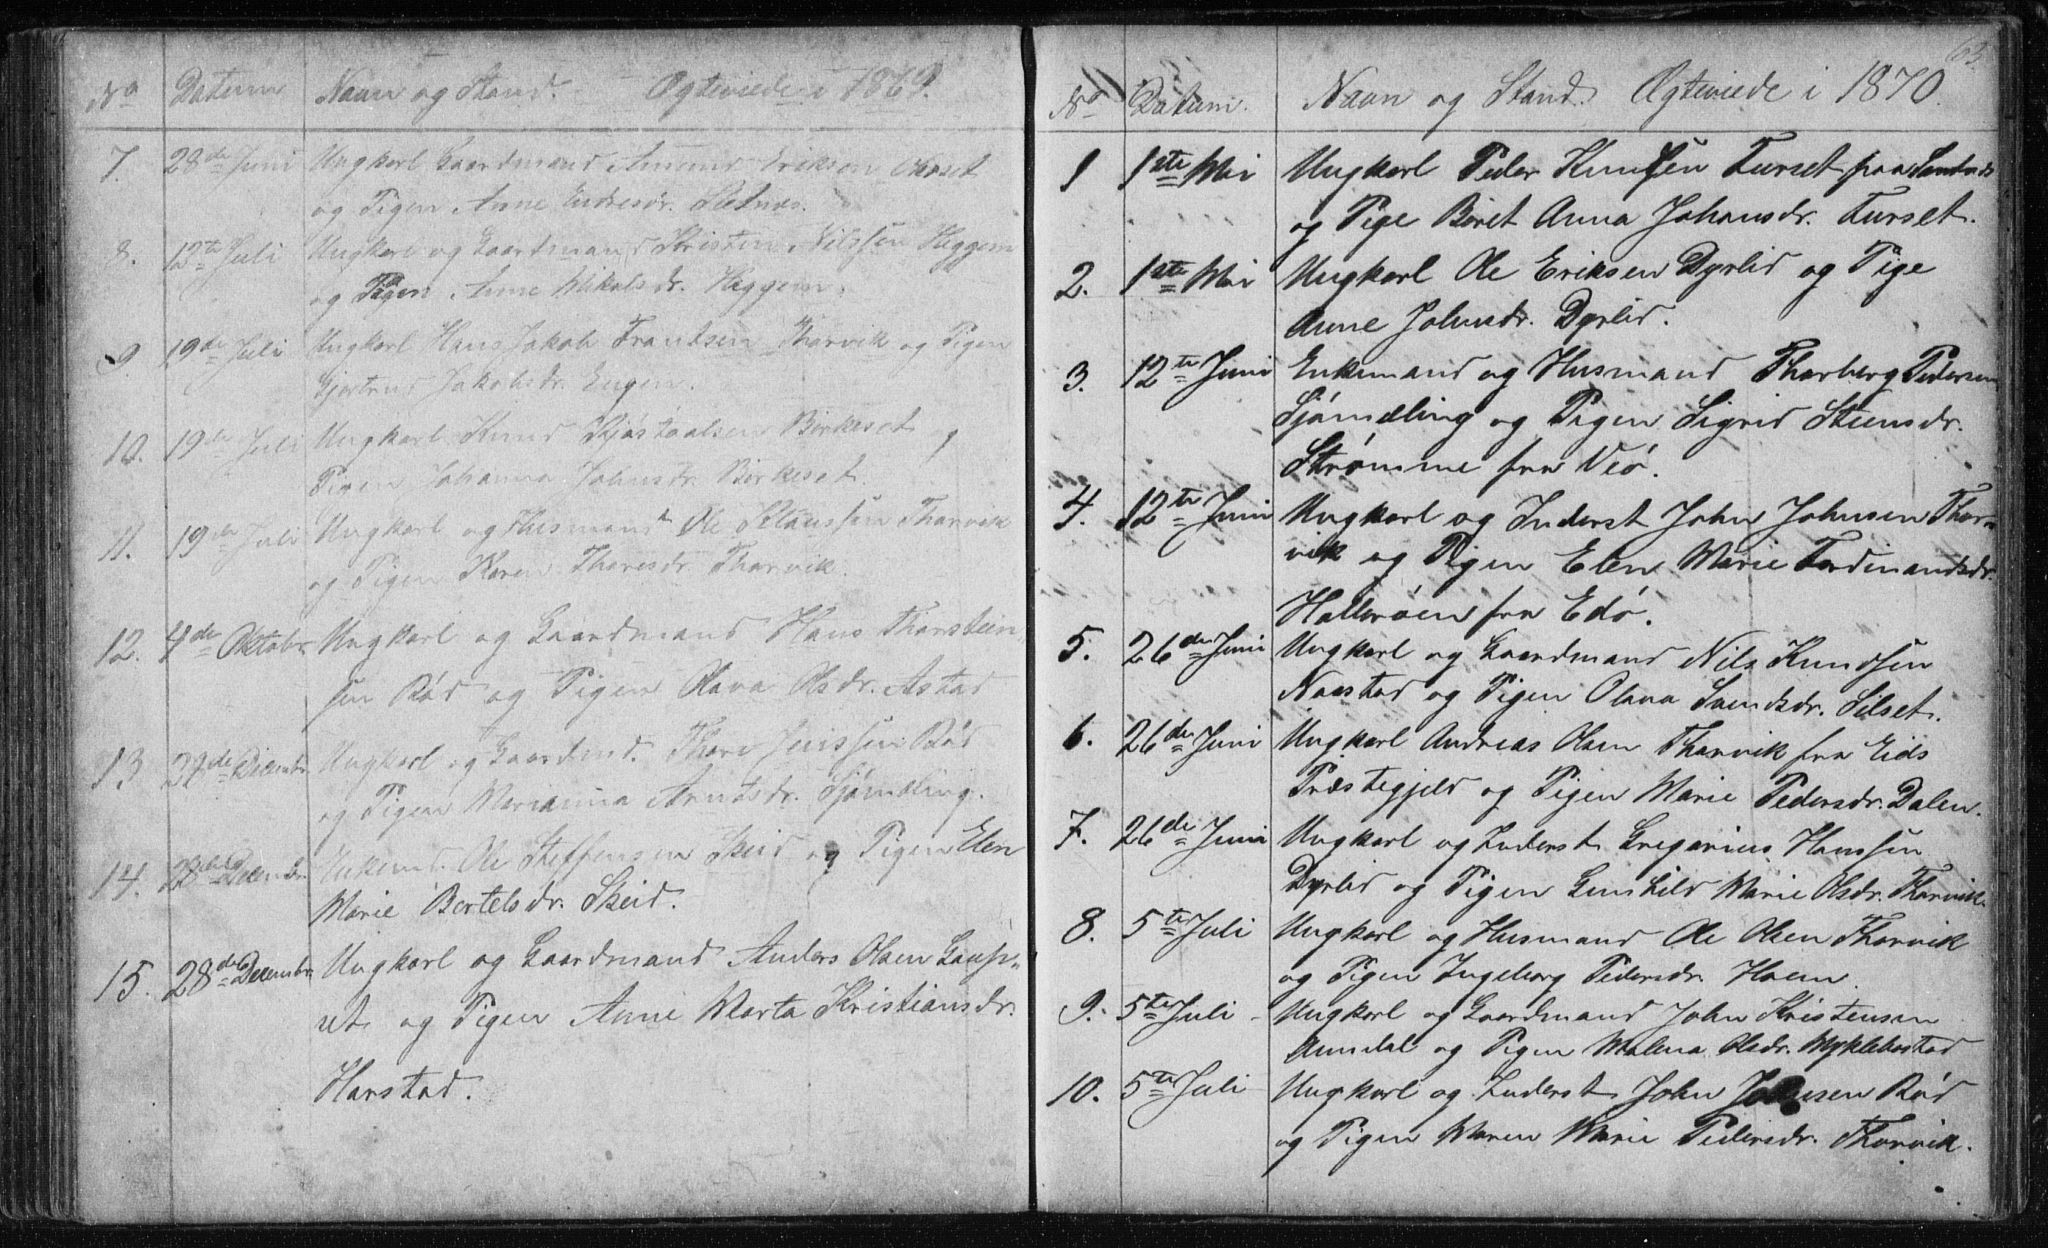 No Datum Navn og Stand. Ægteviede i 1869.
7. 28de Juni Ungkarl Gaardmand Amund Eriksen
og Pigen Anne Endresdr.
8. 12te Juli Ungkarl og Gaardmand Kristen Nilssen Heggem
og Pigen Anne Nikolsdr. Heggem.
9. 19de Juli Ungkarl Hans Jakob Frantsen Thorvik og Pigen
Gjertrud Jakobsdr. Engen.
10. 19de Juli Ungkarl Knud Birkeset og
Pigen Johanna Johnsdr. Birkeset.
11. 19de Juli Ungkarl og Husmand Ole Thorvik
og Pigen Karen Thoresdr. Thorvik.
12. 4de Oktobr. Ungkarl og Gaardmand Hans Thorstein
sen Rød og Pigen Olava Olsdr. Astad
13. 27de Decembr. Ungkarl og Gaardmd. Thore Jenssen Rød
og Pigen Marianna Arntsdr. Sjømæling.
14. 28de Decembr. Enkemd. Ole Steffensen Skeid og Pigen Elen
Marie Bertelsdr. Skeid.
15. 28de Decembr. Ungkarl og Gaardmand Anders Olsen Gaup-
set og Pigen Anne Marta Kristiansdr.
Harstad.
63
No Datum. Navn og Stand. Ægteviede i 1870.
1 1ste Mai Ungkarl Peder Knutsen Furset paa
og Pige Beret Anna Johansdr. Furset.
2. 1ste Mai Ungkarl Ole Eriksen Dyrlid og Pige
Anne Johnsdr. Dyrlid.
3. 12te Juni Enkemand og Husmand Thorberg Pedersen
Sjømæling og Pigen Sigrid Steensdr.
Strømme fra Veø.
4. 12te Juni Ungkarl og Inderst John Johnsen Thor-
vik og Pigen Elen Marie Ferdinandsdr.
Hallerøen fra Edø.
5. 26de Juni Ungkarl og Gaardmand Nils Knudsen
Naastad og Pigen Olava Svendsdr. Silset.
6. 26de Juni Ungkarl Andreas Olsen Thorvik fra Eids
Præstegjeld og Pigen Marie Pedersdr. Dalen.
7. 26de Juni Ungkarl og Inderst Gregorius Hanssen
Dyrlid og Pigen Gunhild Marie Olsdr. Thorvik.
8. 5te Juli Ungkarl og Husmand Ole Olsen Thorvik
og Pigen Ingeborg Pedersdr. Hoem.
9. 5te Juli Ungkarl og Gaardmand John Kristensen
Aundal og Pigen Malena Olsdr. Myklebostad
10. 5te Juli Ungkarl og Inderst John Johnsen Rød
og Pigen Maren Marie Pedersdr. Thorvik.